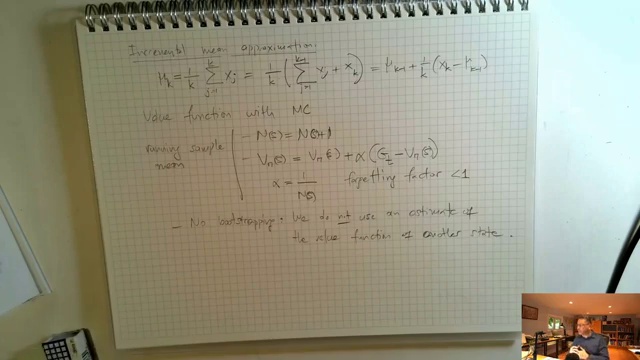 Incremental mean approximation:
μ_k = 1/k Σ_{j=1}^{k} x_j = 1/k ( Σ_{j=1}^{k-1} x_j + x_k ) = μ_{k-1} + 1/k ( x_k − μ_{k-1} )
Value function with MC
running sample mean
– N(s) = N(s)+1
– V_π(s) = V_π(s) + α ( G_t − V_π(s) )
α = 1/N(s) forgetting factor < 1
– No bootstrapping: We do not use an estimate of
the value function of another state.